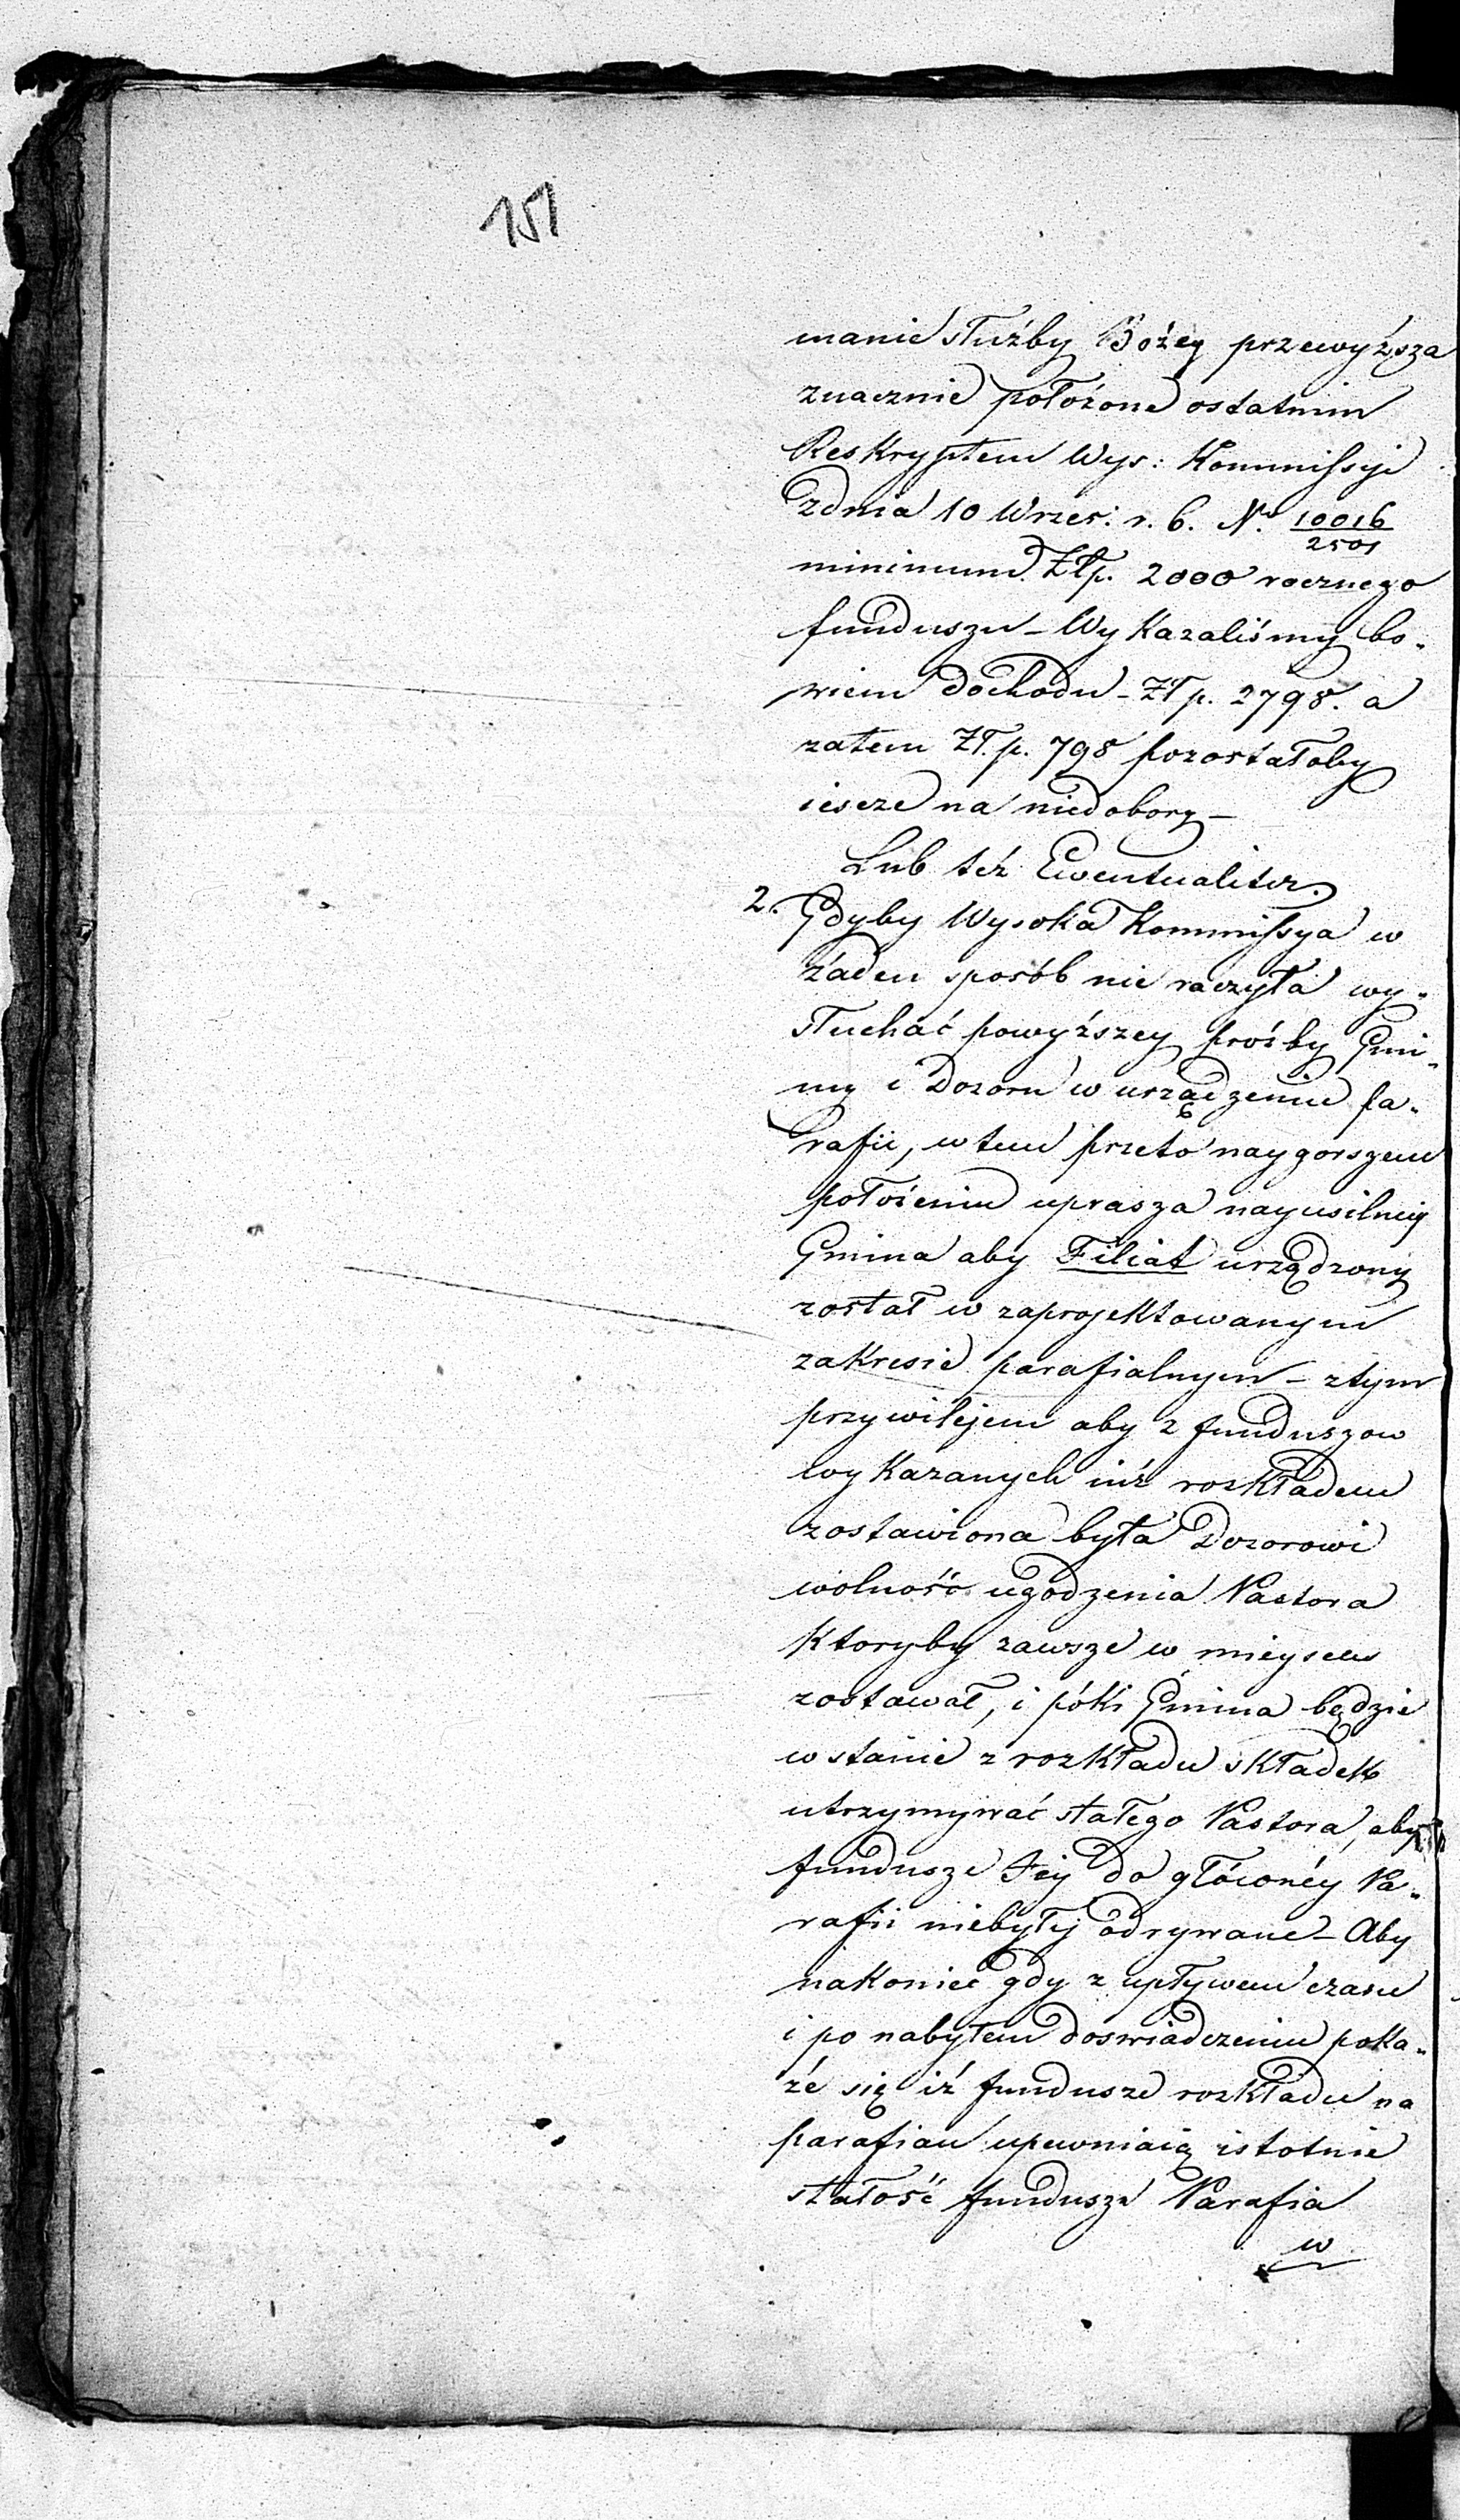 151
manie służby Bożey przewyższa
znacznie położone ostatnim
Reskryptem Wys: Kommissyi
zdnia 10 Wrześ: r. b. No. 10016/2501
minimum Złp. 2000 rocznego
funduszu – Wykazaliśmy bo-
wiem dochodu – Złp. 2798. a
zatem Zł.p. 798 pozostałoby
iescze na niedobory –
Lub też Ewentualiter.
2. Gdyby Wysoka Kommissya w
żaden sposób nie raczyła wy-
słuchać powyższey prośby Gmi-
ny i Dozoru w urządzeniu pa-
rafii, w tem przeto naygorszem
położeniu uprasza nayusilniey
Gmina aby Filiał urządzony
został w zaprojektowanym
zakresie parafialnym – ztym
przywilejem aby z funduszow
wykazanych iuż rozkładem
zostawiona była Dozorowi
wolność ugodzenia Pastora
ktoryby zawsze w mieyscu
zostawał, i póki Gmina będzie
w stanie z rozkładu składek
utrzymywać stałego Pastora, aby
fundusze Jey do głównéy Pa-
rafii niebyły odrywane – Aby
nakoniec gdy z upływem czasu
i po nabytem doswiadczeniu poka-
że się iż fundusze rozkładu na
parafian upewniaią istotnie
stałość fundusze Parafia
w